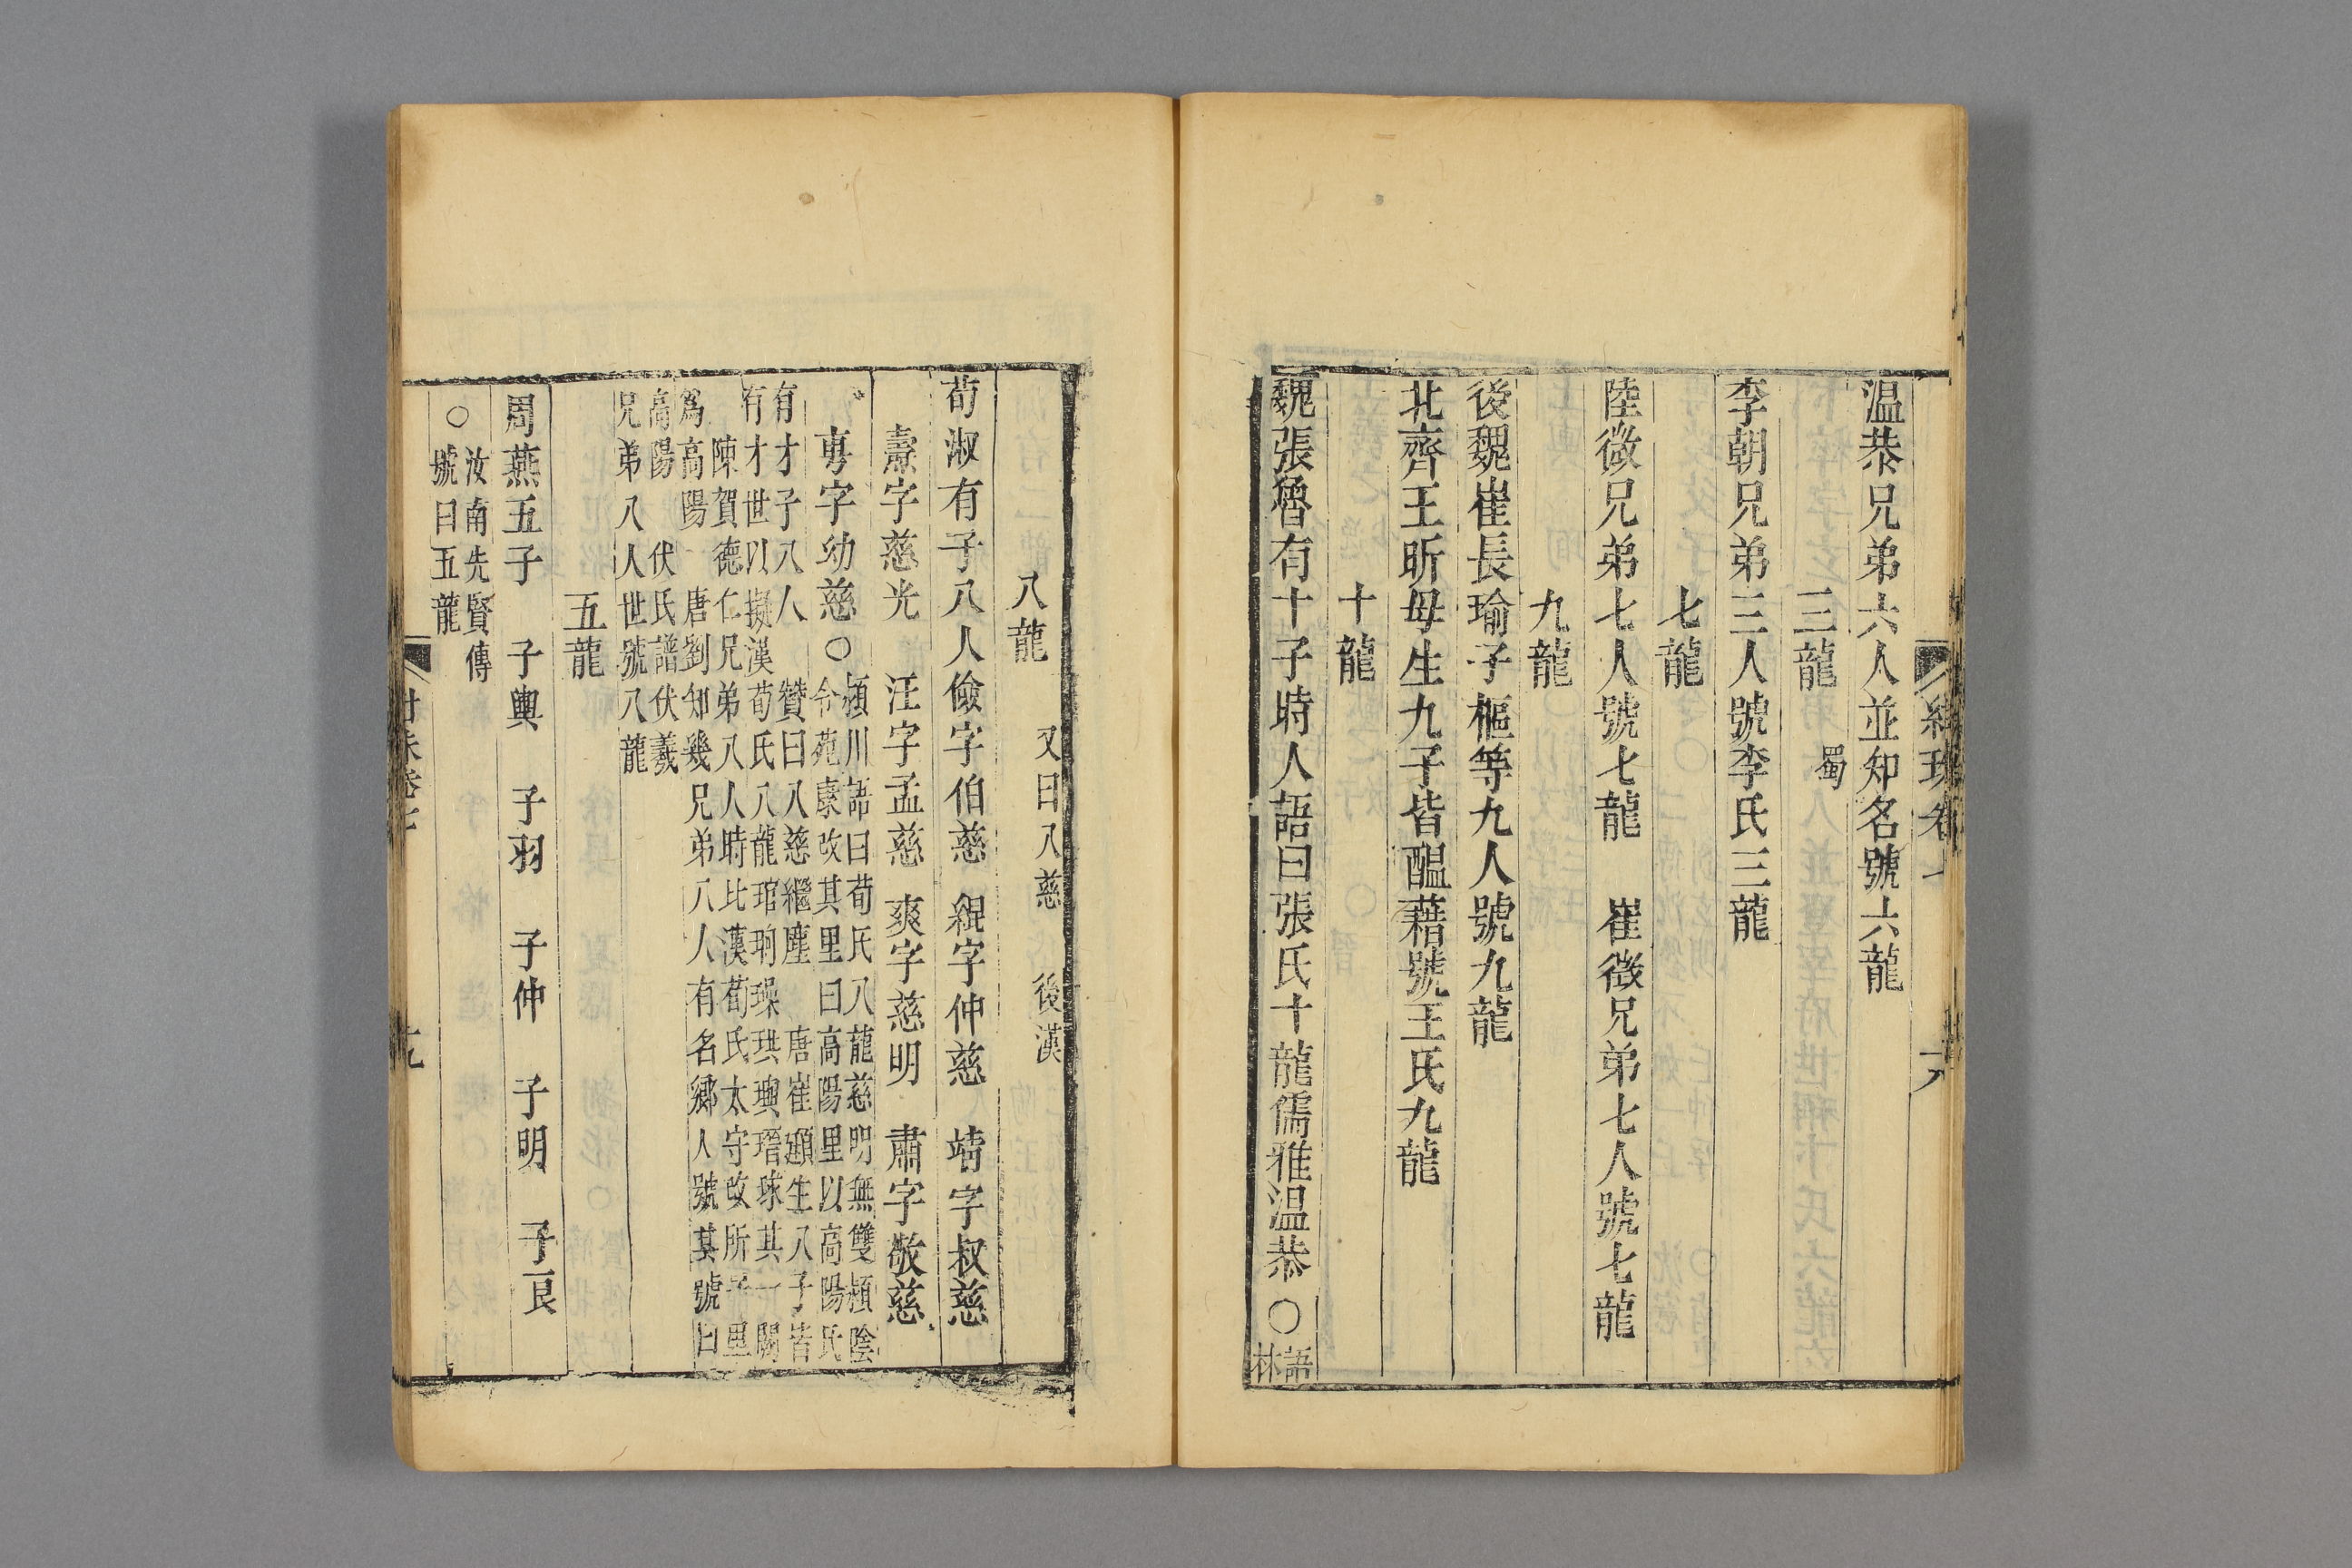 温恭兄弟六人並知名號六龍
三龍 蜀
李朝兄弟三人號李氏三龍
七龍
陸徵兄弟七人號七龍 崔徵兄弟七人號七龍
九龍
後魏崔長瑜子樞等九人號九龍
北齊王昕母生九子皆醞藉號王氏九龍
十龍
魏張魯有十子時人語曰張氏十龍儒雅温恭○語
林
八龍 又曰八慈 後漢
荀淑有子八人儉字伯慈 緄字仲慈 靖字叔慈
燾字慈光 汪字孟慈 爽字慈明 肅字敬慈
旉字幼慈○潁川語曰荀氏八龍慈明無雙潁陰
令苑康改其里曰高陽里以高陽氏
有才子八人 贊曰八慈繼塵 唐崔頲生八子皆
有才世以擬漢荀氏八龍琯珦璪珙璵瑨球其一闕
陳賀德仁兄弟八人時比漢荀氏太守改所子里
爲高陽 唐劉知幾兄弟八人有名鄉人號其號曰
高陽 伏氏譜伏羲
兄弟八人世號八龍
五龍
周燕五子 子輿 子羽 子仲 子明 子良
○汝南先賢傳
號曰五龍